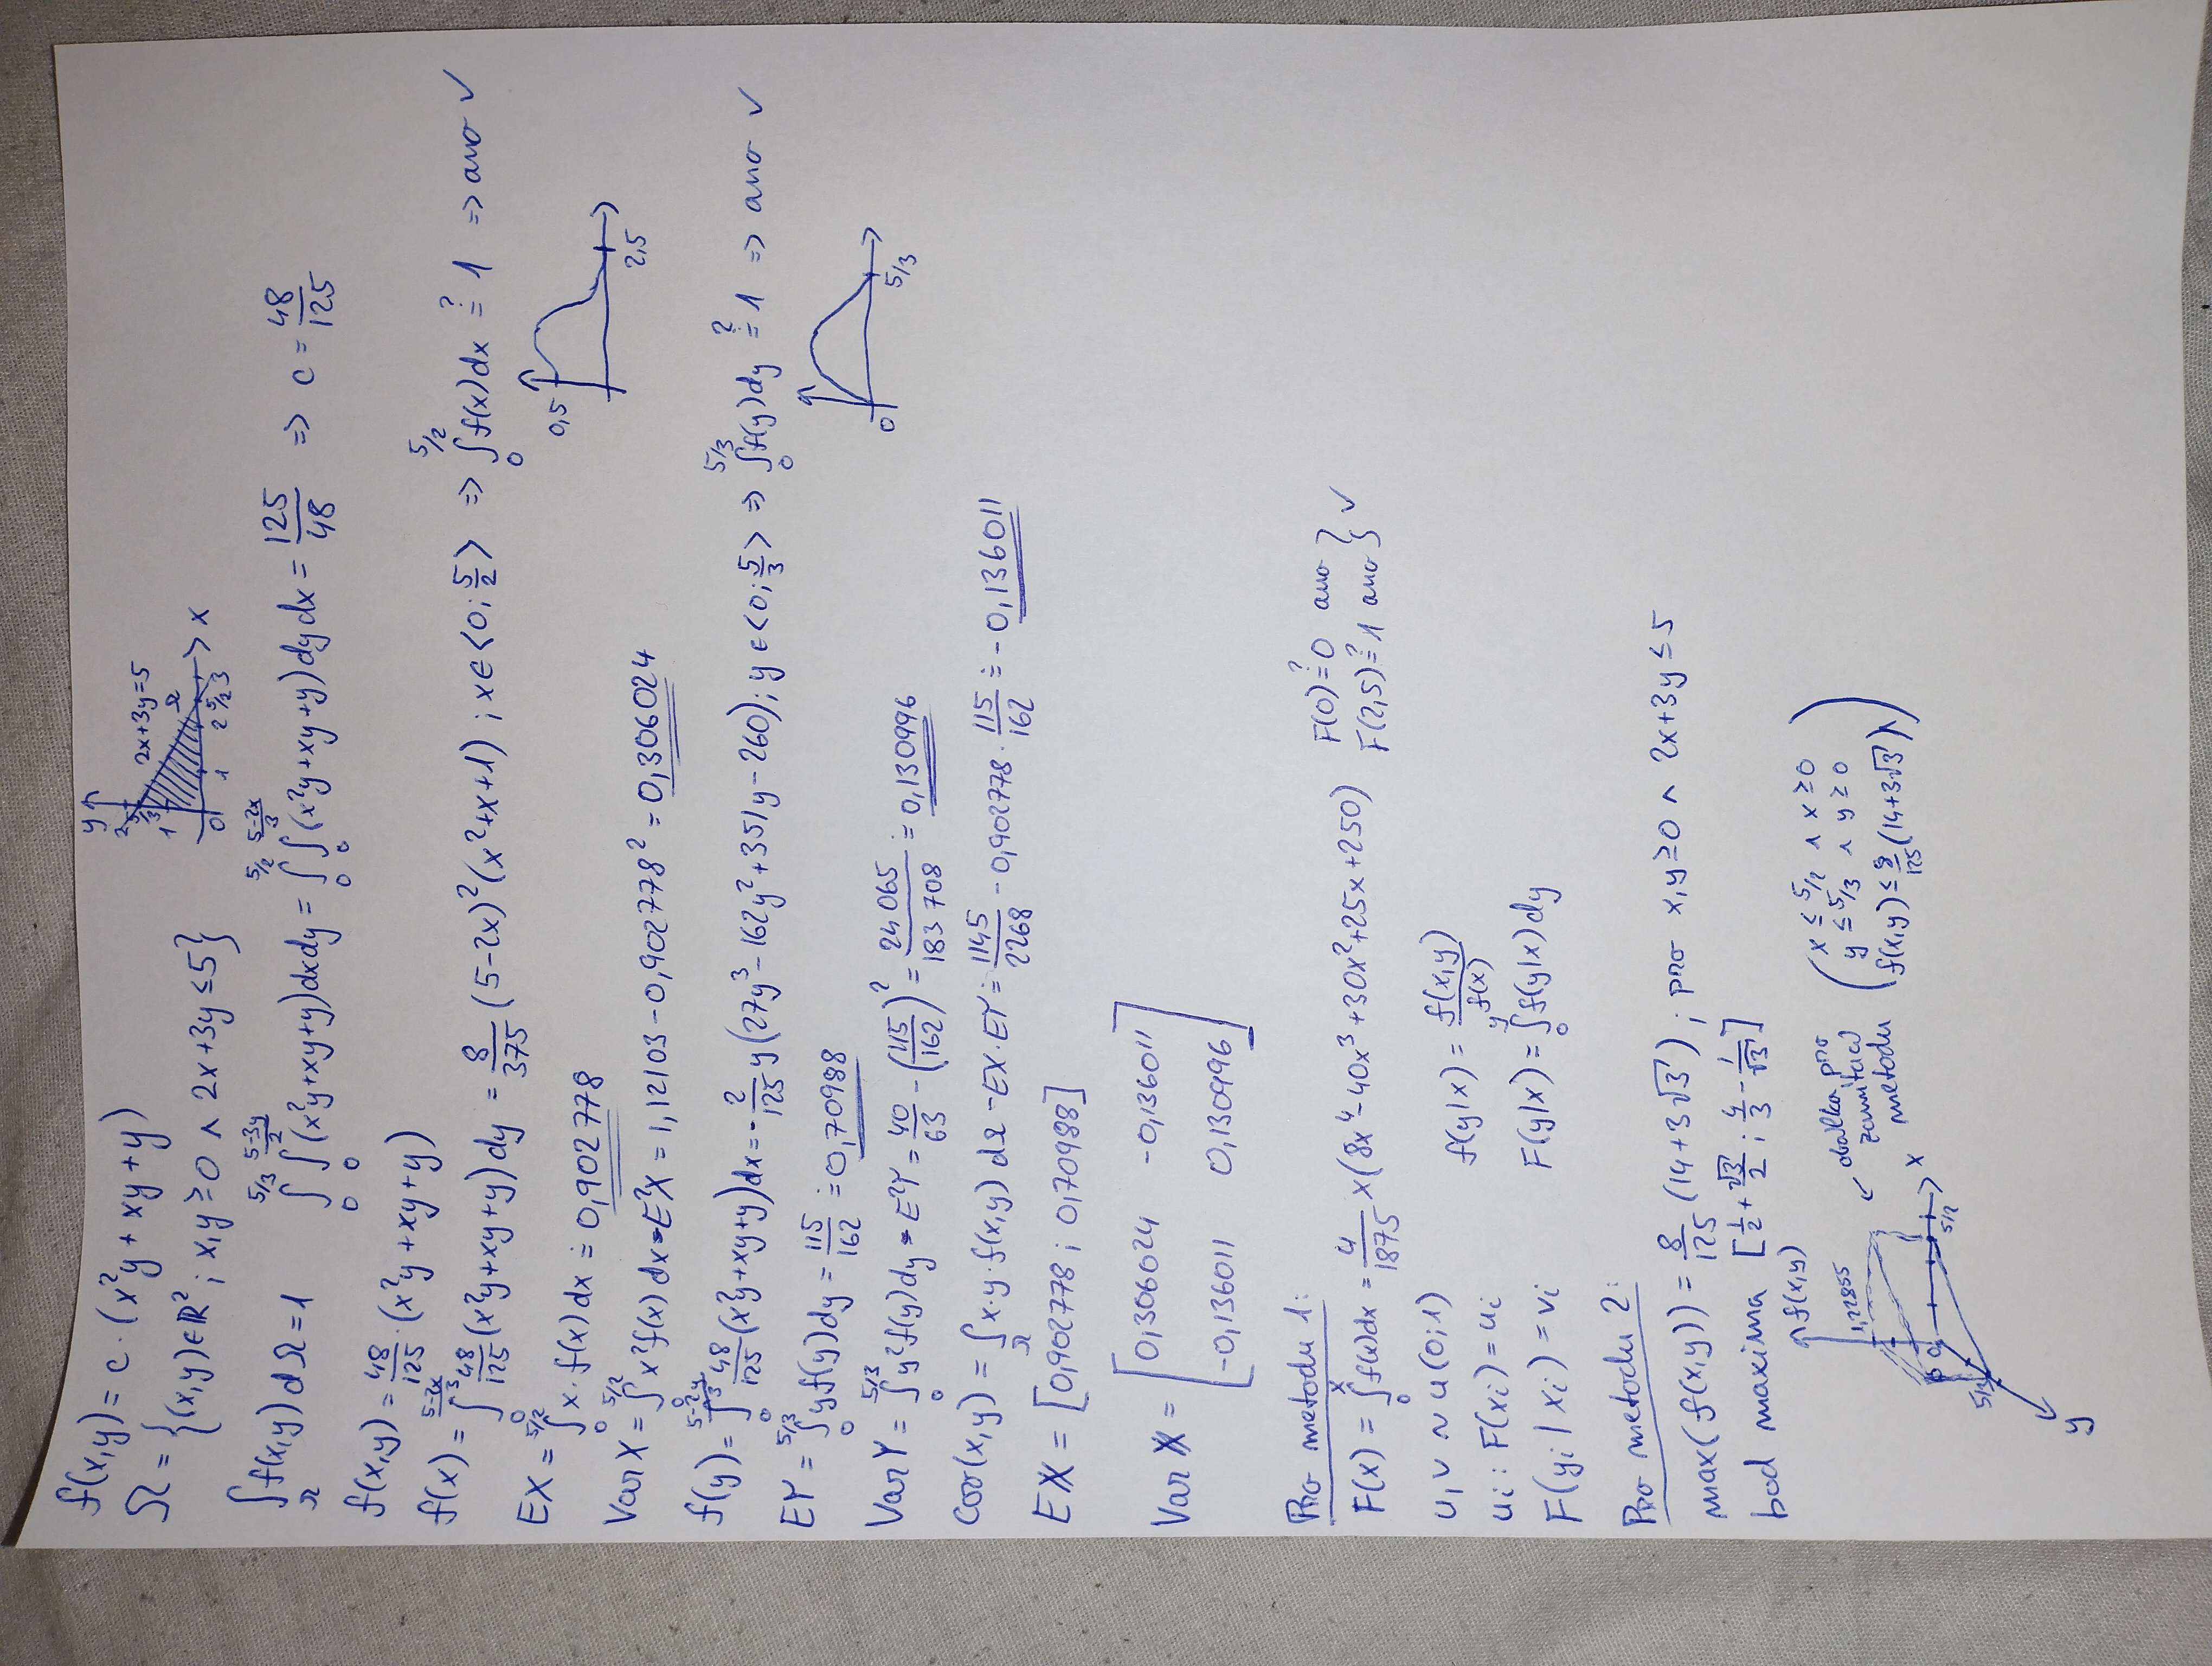 f(x,y) = c · (x²y + xy + y)
Ω = {(x,y)∈ℝ² ; x,y ≥ 0 ∧ 2x+3y ≤ 5}
y 2 5/3 1 0 1 2 5/2 3 x 2x+3y=5 Ω
∫_Ω f(x,y) dΩ = 1   ∫_0^{5/3} ∫_0^{(5-3y)/2} (x²y+xy+y) dx dy = ∫_0^{5/2} ∫_0^{(5-2x)/3} (x²y+xy+y) dy dx = 125/48 => c = 48/125
f(x,y) = 48/125 · (x²y + xy + y)
f(x) = ∫_0^{(5-2x)/3} 48/125 (x²y+xy+y) dy = 8/375 (5-2x)² (x²+x+1) ; x∈<0; 5/2> => ∫_0^{5/2} f(x) dx ≟ 1 => ano ✓
EX = ∫_0^{5/2} x · f(x) dx ≐ 0,902778
0,5 2,5
Var X = ∫_0^{5/2} x² f(x) dx - E²X = 1,12103 - 0,902778² = 0,306024
f(y) = ∫_0^{(5-2y)/3} 48/125 (x²y+xy+y) dx = -2/125 y (27y³ - 162y² + 351y - 260) ; y∈<0; 5/3> => ∫_0^{5/3} f(y) dy ≟ 1 => ano ✓
EY = ∫_0^{5/3} y f(y) dy = 115/162 ≐ 0,70988
0 5/3
Var Y = ∫_0^{5/3} y² f(y) dy - E²Y = 40/63 - (115/162)² = 24 065/183 708 ≐ 0,130996
cov(x,y) = ∫_Ω x·y·f(x,y) dΩ - EX·EY ≐ 1145/2268 - 0,902778 · 115/162 ≐ -0,136011
E𝕏 = [0,902778 ; 0,70988]
Var 𝕏 = [0,306024 -0,136011
-0,136011 0,130996]
Pro metodu 1:
F(x) = ∫_0^x f(x) dx = 4/1875 x (8x⁴ - 40x³ + 30x² + 25x + 250)   F(0) ≟ 0 ano
F(2,5) ≟ 1 ano } ✓
u, v ~ u(0;1)   f(y|x) = f(x,y)/f(x)
u_i : F(x_i) = u_i
F(y_i | x_i) = v_i   F(y|x) = ∫_0^y f(y|x) dy
Pro metodu 2:
max(f(x,y)) = 8/125 (14 + 3√3) ; pro x,y ≥ 0 ∧ 2x+3y ≤ 5
bod maxima [1/2 + √3/2 ; 4/3 - 1/√3]
f(x,y) 1,22855 0 5/2 x 5/3 y
obálka pro
zamítací
metodu
(x ≤ 5/2 ∧ x ≥ 0
y ≤ 5/3 ∧ y ≥ 0
f(x,y) ≤ 8/125 (14+3√3))